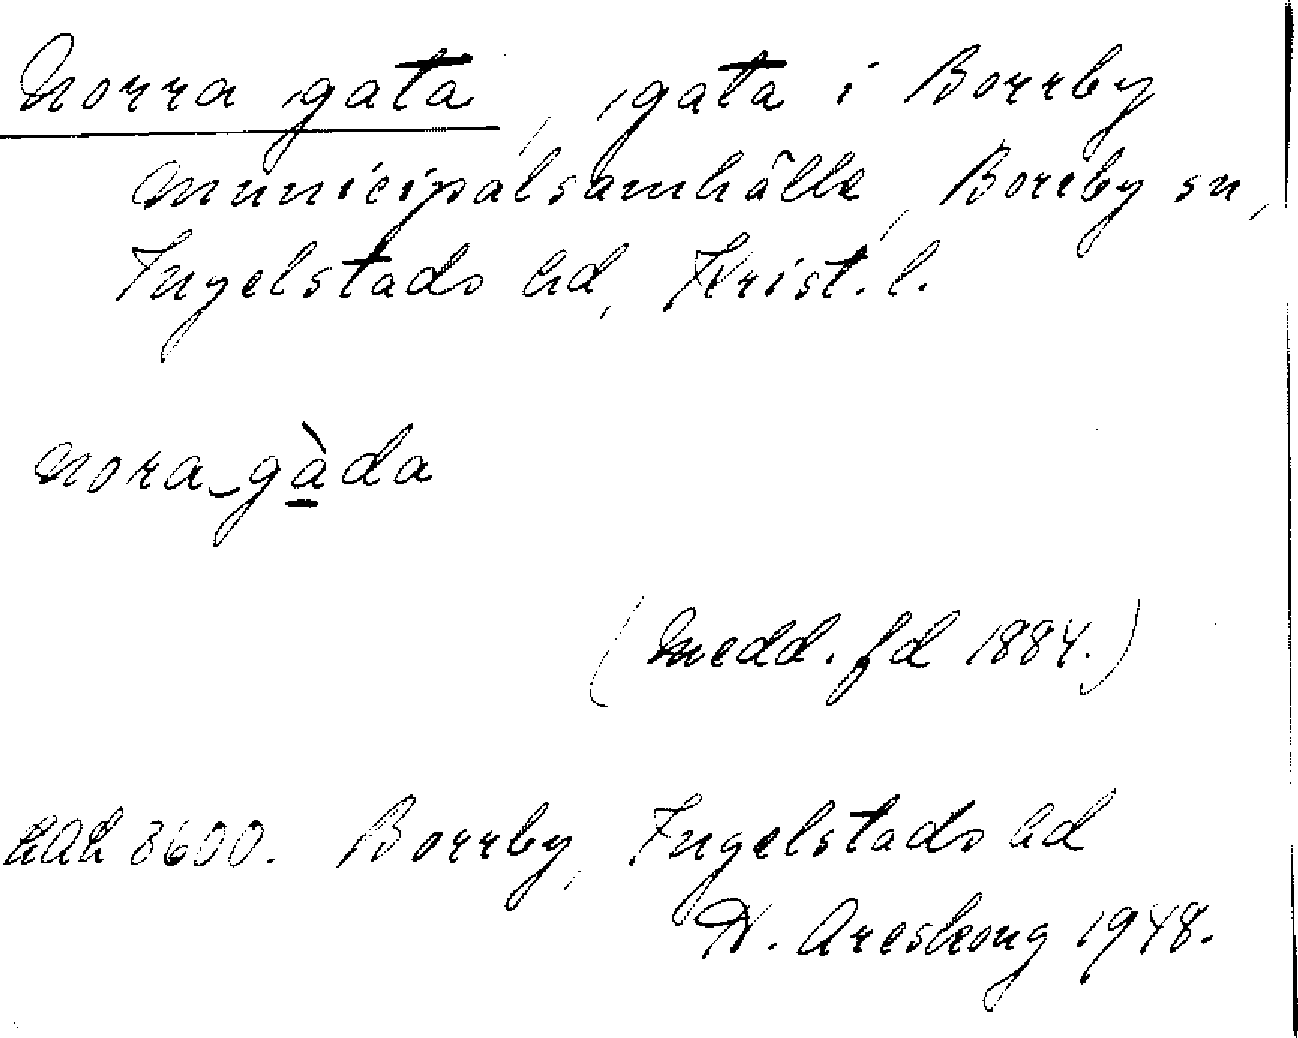 Norra gata, gata i Borrby
municipalsamhälle, Borrby sn,
Ingelstads hd, Krist. l.
nora-gàda
(Medd. fd 1884.)
LAL 3600. Borrby, Ingelstads hd
N. Areskoug 1948.